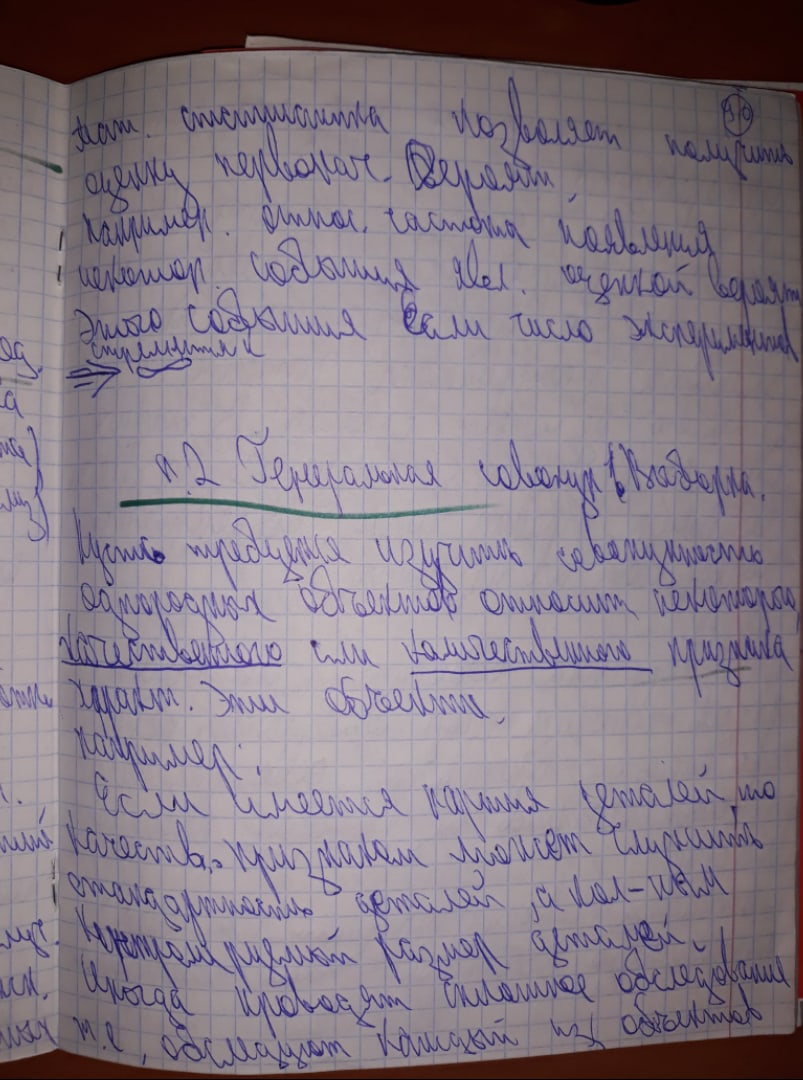 30
мат. статистика позволяет получить
оценку первонач. вероятн.
например. относ. частота появления
некотор. события явл. оценкой вероят
этого события если число экспериментов
стремится к
⇒ ∞
п.2 Генеральная совокуп. Выборка.
Пусть требуется изучить совокупность
однородных объектов относит. некоторого
качественного или количественного признака
характ. эти объекты.
например:
Если имеется партия деталей, то
качеств. признаком может служить
стандартность деталей, а кол-ным
контролируемый размер деталей.
Иногда проводят сплошное обследование
т.е, обследуют каждый из объектов